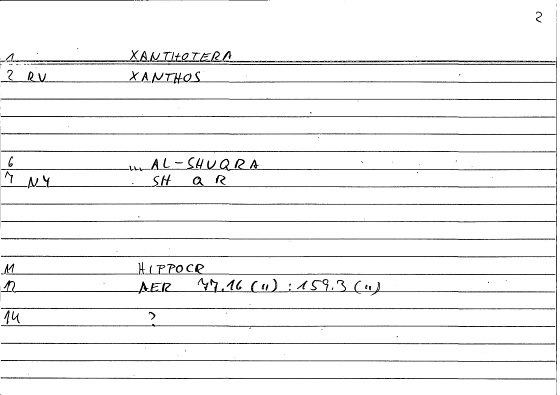 2
1 XANTHOTERA
2 RV XANTHOS
6 ... AL-SHUQRA
7 NY SH Q R
11 HIPPOCR
12 AER 77.16 (") : 159.3 (")
14 ?